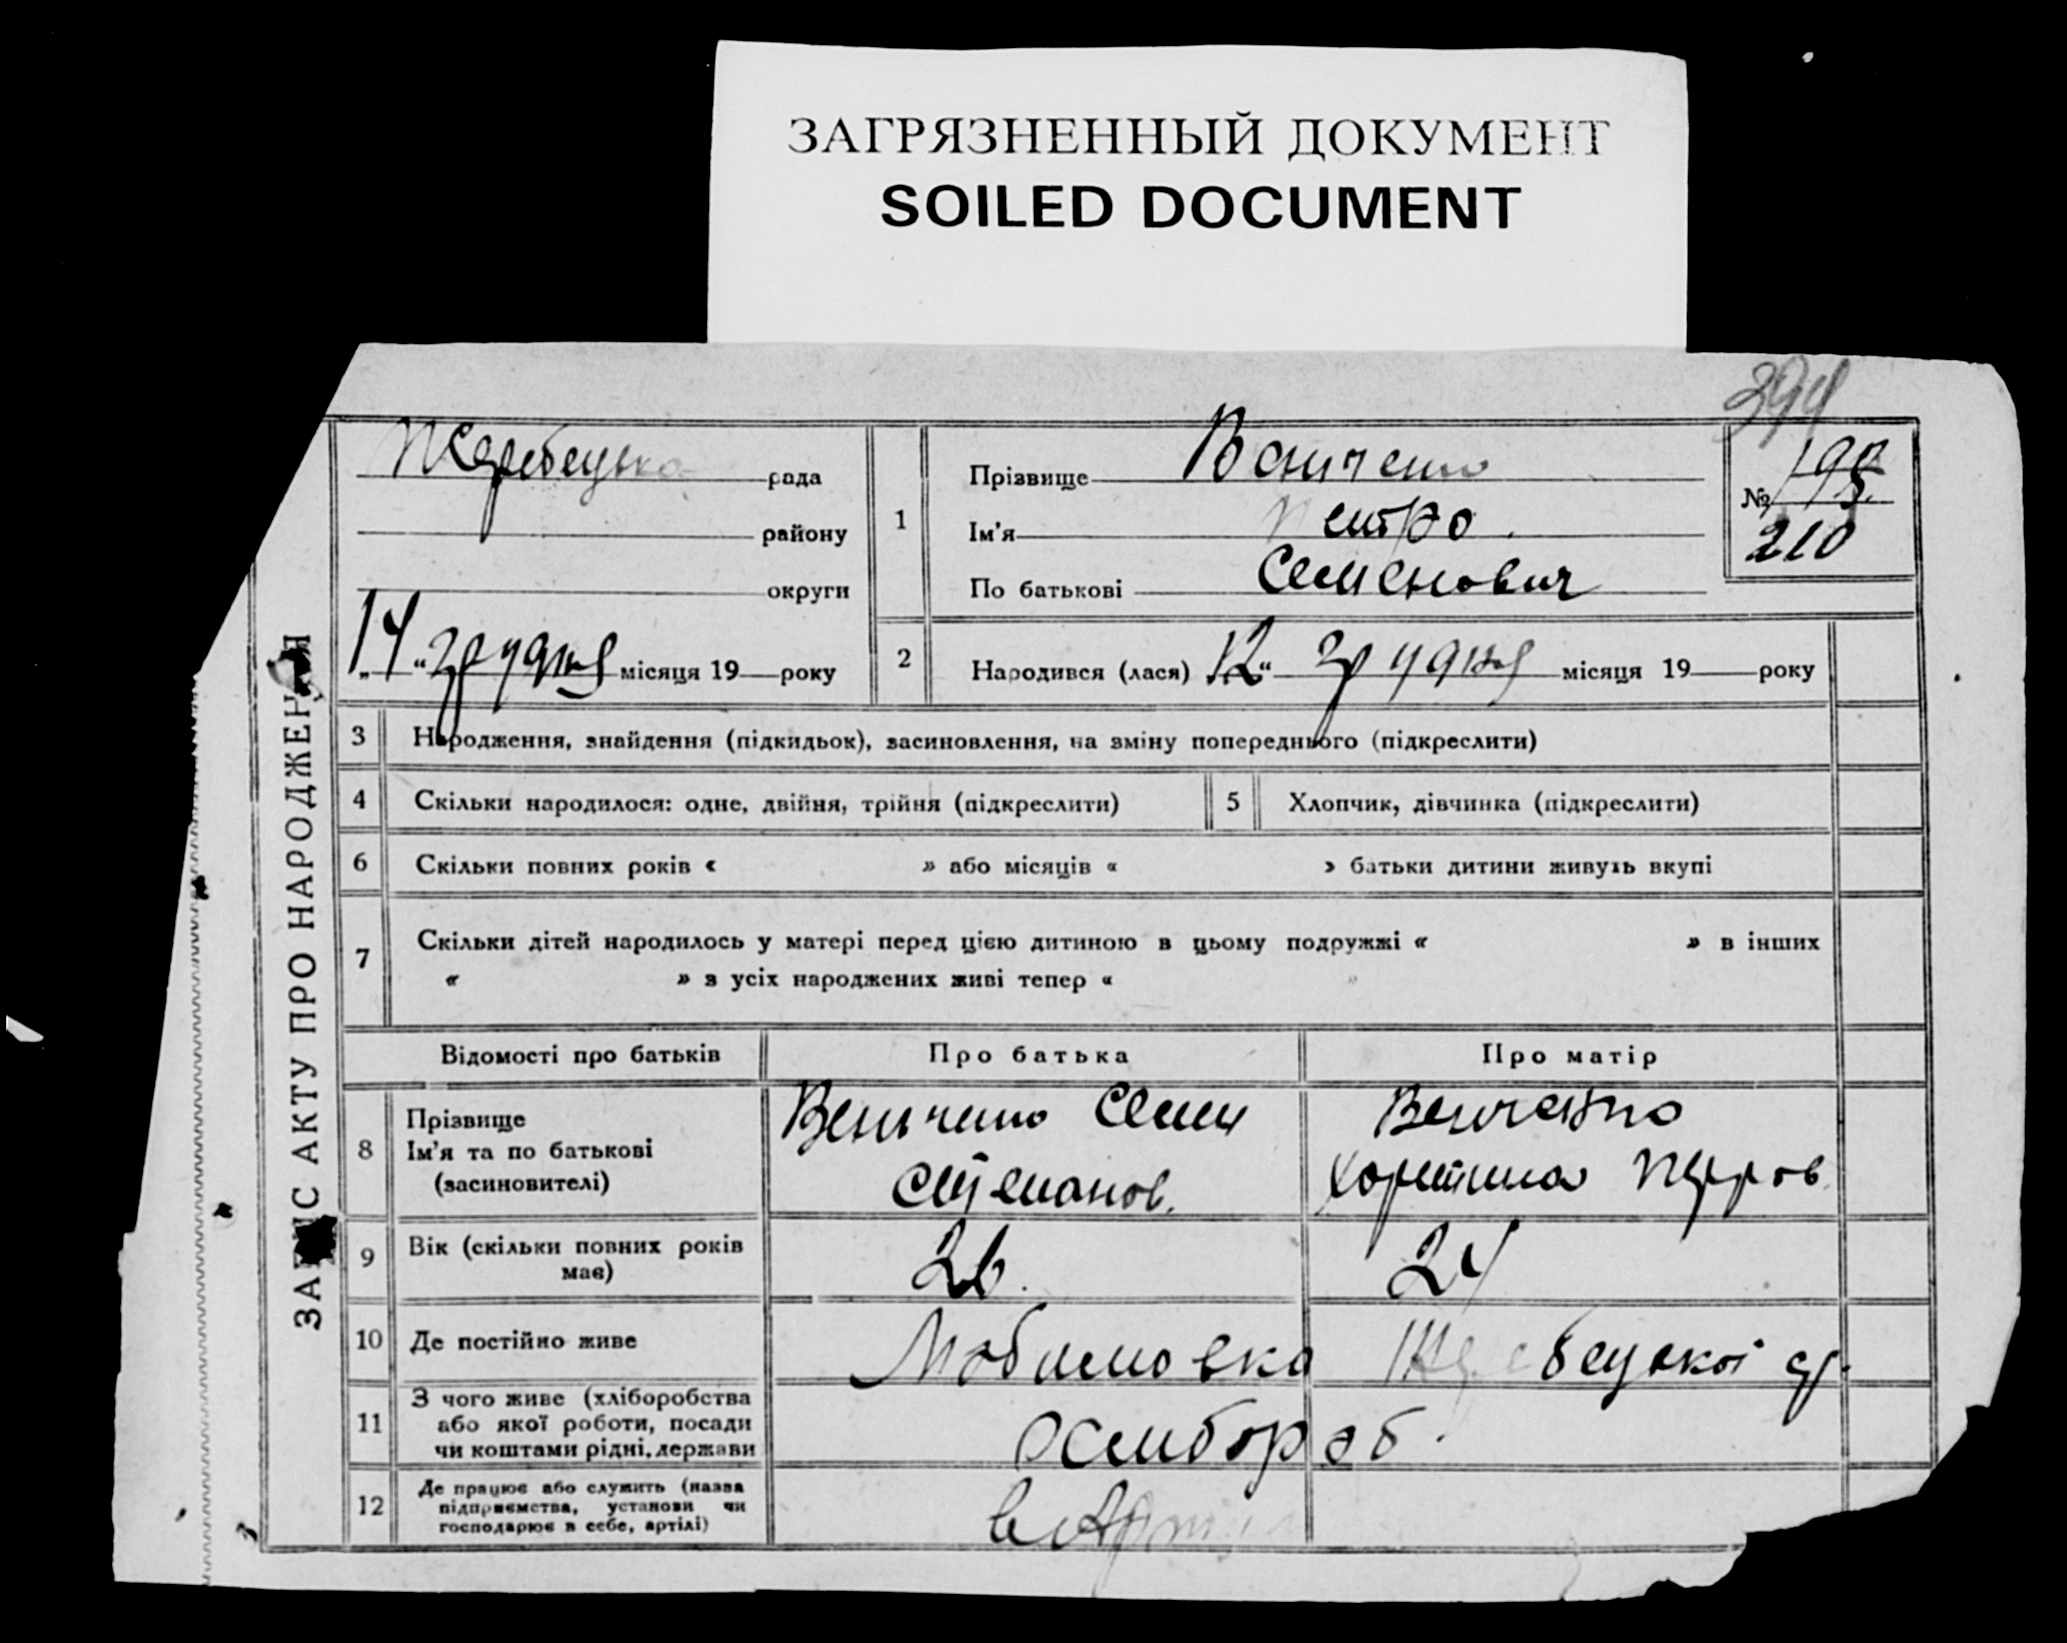 ЗАГРЯЗНЕННЫЙ ДОКУМЕНТ
SOILED DOCUMENT
394
ЗАПИС АКТУ ПРО НАРОДЖЕННЯ
Жеребецька рада
району
округи
„14“ грудня місяця 19 року
1
Прізвище
Ім'я Петро
По батькові Семенович
№ 195
210
2
Народився (лася) „12“ грудня місяця 19 року
3 Народження, знайдення (підкидьок), засиновлення, на зміну попереднього (підкреслити)
4 Скільки народилося: одне, двійня, трійня (підкреслити)
5 Хлопчик, дівчинка (підкреслити)
6 Скільки повних років « » або місяців « » батьки дитини живуть вкупі
7 Скільки дітей народилось у матері перед цією дитиною в цьому подружжі « » в інших
« » з усіх народжених живі тепер « »
Відомості про батьків Про батька Про матір
8 Прізвище
Ім'я та по батькові
(засиновителі)
Семен
Степанов.
Хористина
9 Вік (скільки повних років
має)
26.
24
10 Де постійно живе Жеребецької
11 З чого живе (хліборобства
або якої роботи, посади
чи коштами рідні, держави
12 Де працює або служить (назва
підприємства, установи чи
господарює в себе, артілі)
в Артілі